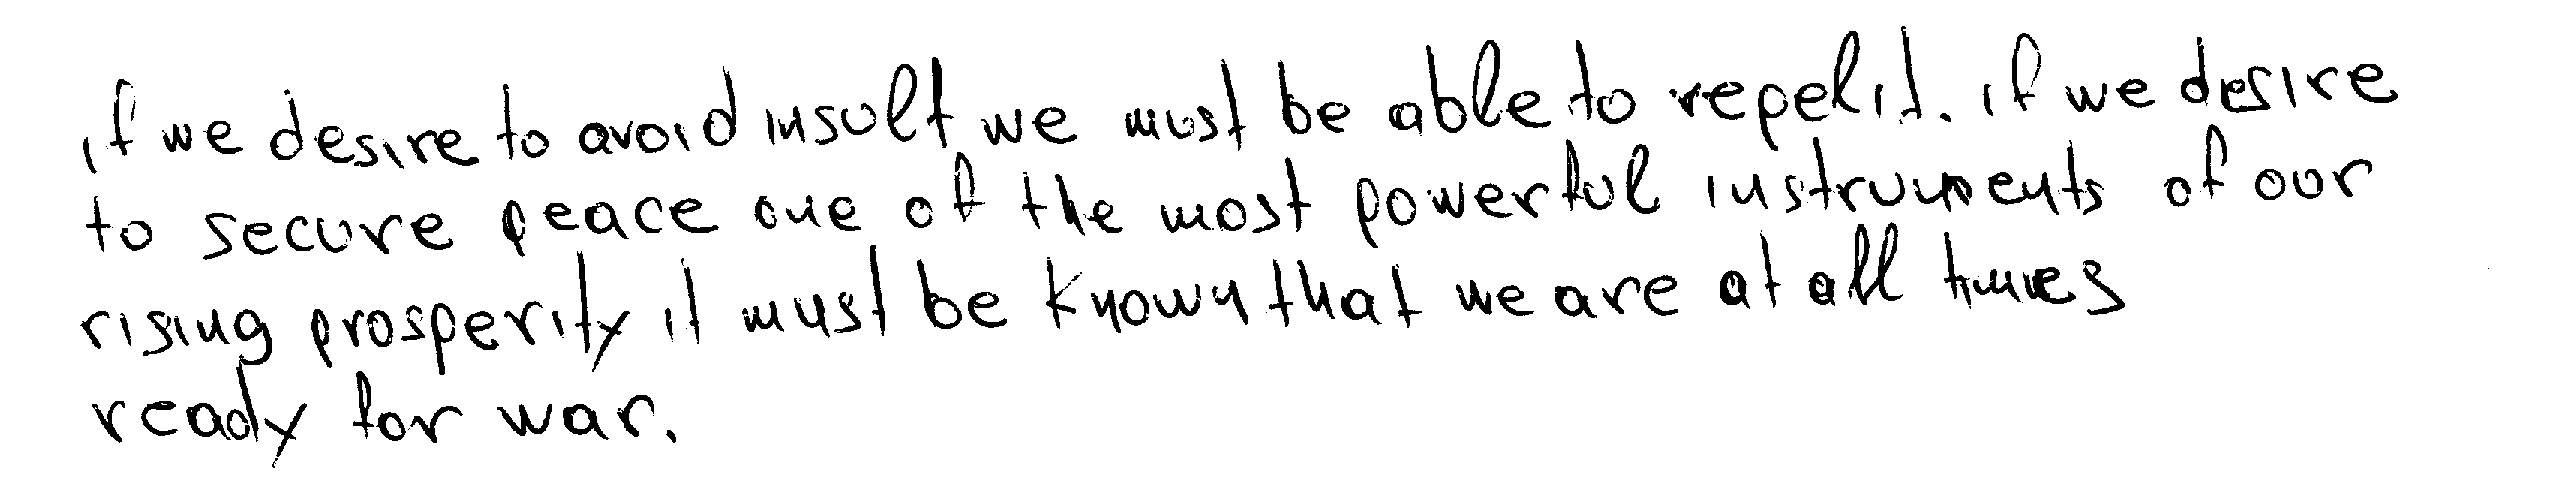 if we desire to avoid insult we must be able to repel it. if we desire
to secure peace one of the most powerful instruments of our
rising prosperity it must be known that we are at all times
ready for war.